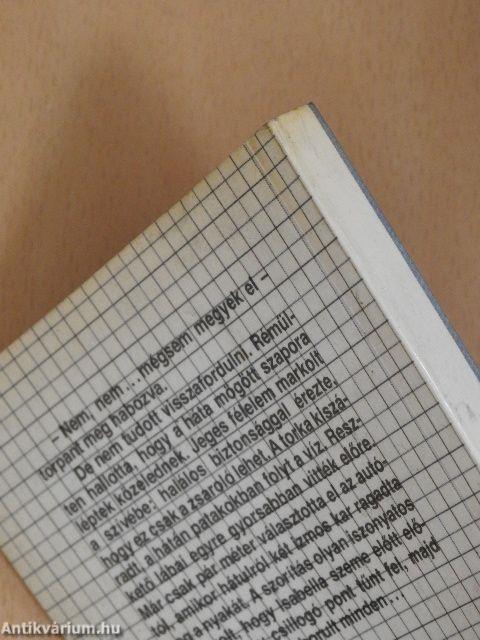 – Nem, nem ... mégsem megyek el –
torpant meg habozva.
De nem tudott visszafordulni. Rémül-
ten hallotta, hogy a háta mögött szapora
léptek közelednek. Jeges félelem markolt
a szívébe: halálos biztonsággal érezte,
hogy ez csak a zsaroló lehet. A torka kiszá-
radt, a hátán patakokban folyt a víz. Resz-
kető lábai egyre gyorsabban vitték előre
Már csak pár méter választotta el az autó-
tól, amikor hátulról két izmos kar ragadta
g a nyakát. A szorítás olyan iszonyatos
olt, hogy Isabella szeme előtt elő-
csillogó pont tűnt fel, majd
borult minden...
Antikvárium.hu